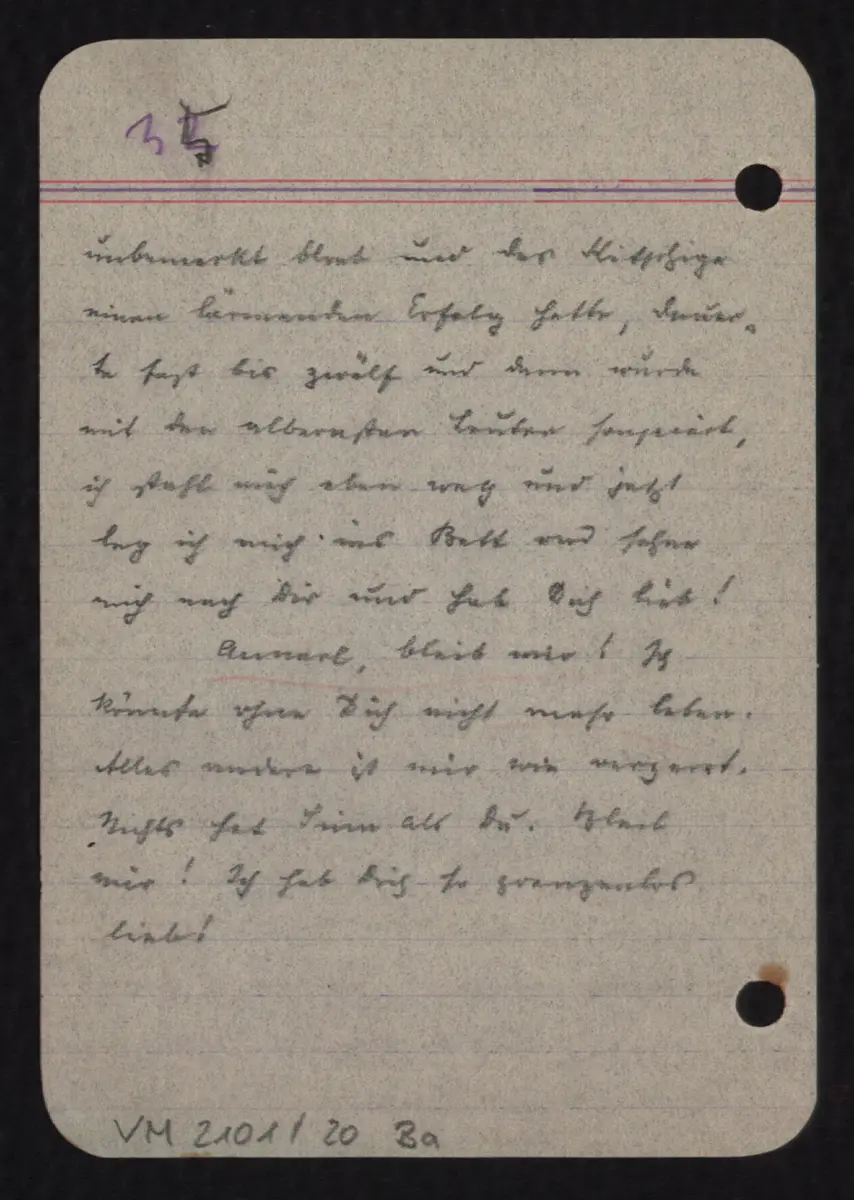 35
unbemerkt blieb und das Kitschige
einen lärmenden Erfolg hatte, dauer-
te fast bis zwölf und dann wurde
mit den albernsten Leuten soupiert,
ich stahl mich eben weg und jetzt
leg ich mich ins Bett und sehne
mich nach Dir und hab Dich lieb!
Annerl, bleib mir! Ich
könnte ohne Dich nicht mehr leben.
Alles andere ist mir wie verzerrt.
Nichts hat Sinn als Du. Bleib
mir! Ich hab Dich so grenzenlos
lieb!
VM 2101/20 Ba